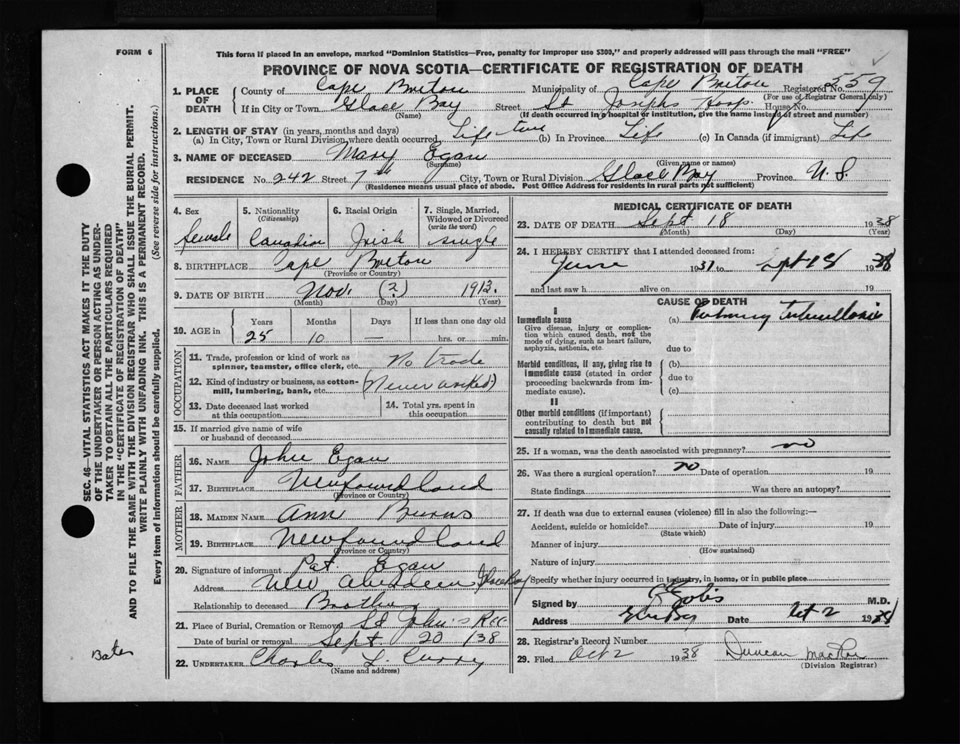 FORM 6
This form if placed in an envelope, marked "Dominion Statistics—Free, penalty for improper use $300," and properly addressed will pass through the mail "FREE"
PROVINCE OF NOVA SCOTIA—CERTIFICATE OF REGISTRATION OF DEATH
1. PLACE OF DEATH County of Cape Breton Municipality of Cape Breton Registered No. 559
(For use of Registrar General only)
If in City or Town Glace Bay Street St Josephs Hosp. House No.
(Name) (If death occurred in a hospital or institution, give the name instead of street and number)
2. LENGTH OF STAY (in years, months and days)
(a) In City, Town or Rural Division where death occurred Life time (b) In Province Life (c) In Canada (if immigrant) Life
3. NAME OF DECEASED Mary Egan
(Surname) (Given name or names)
RESIDENCE No. 242 Street 7th City, Town or Rural Division Glace Bay Province N. S.
(Residence means usual place of abode. Post Office Address for residents in rural parts not sufficient)
4. Sex 5. Nationality (Citizenship) 6. Racial Origin 7. Single, Married, Widowed or Divorced (write the word)
female Canadian Irish single
8. BIRTHPLACE Cape Breton
(Province or Country)
9. DATE OF BIRTH Nov. (?) 1912.
(Month) (Day) (Year)
10. AGE in Years Months Days If less than one day old
25 10 — hrs. or min.
OCCUPATION
11. Trade, profession or kind of work as spinner, teamster, office clerk, etc. No trade
12. Kind of industry or business, as cotton-mill, lumbering, bank, etc. (Never worked)
13. Date deceased last worked at this occupation
14. Total yrs. spent in this occupation
15. If married give name of wife or husband of deceased
FATHER
16. NAME John Egan
17. BIRTHPLACE Newfoundland
(Province or Country)
MOTHER
18. MAIDEN NAME Ann Burns
19. BIRTHPLACE Newfoundland
(Province or Country)
20. Signature of informant Pat. Egan
Address New Aberdeen Glace Bay
Relationship to deceased Brother
21. Place of Burial, Cremation or Removal St John's
Date of burial or removal Sept. 20 /38
22. UNDERTAKER Charles L Curry
MEDICAL CERTIFICATE OF DEATH
23. DATE OF DEATH Sept 18 1938
(Month) (Day) (Year)
24. I HEREBY CERTIFY that I attended deceased from:
June 1937 to Sept 18 1938
and last saw h alive on 19
CAUSE OF DEATH
I
Immediate cause
Give disease, injury or complication which caused death, not the mode of dying, such as heart failure, asphyxia, asthenia, etc.
(a) Pulmonary Tuberculosis
due to
Morbid conditions, if any, giving rise to immediate cause (stated in order proceeding backwards from immediate cause).
(b)
due to
(c)
II
Other morbid conditions (if important) contributing to death but not causally related to immediate cause.
25. If a woman, was the death associated with pregnancy? no
26. Was there a surgical operation? no Date of operation 19
State findings Was there an autopsy?
27. If death was due to external causes (violence) fill in also the following:—
Accident, suicide or homicide? Date of injury 19
(State which)
Manner of injury
(How sustained)
Nature of injury
Specify whether injury occurred in industry, in home, or in public place
Signed by M.D.
Address Date Oct 2 1938
28. Registrar's Record Number
29. Filed Oct 2 1938 Duncan MacRae
(Division Registrar)
SEC. 46—VITAL STATISTICS ACT MAKES IT THE DUTY
OF THE UNDERTAKER OR PERSON ACTING AS UNDER-
TAKER TO OBTAIN ALL THE PARTICULARS REQUIRED
IN THE "CERTIFICATE OF REGISTRATION OF DEATH"
AND TO FILE THE SAME WITH THE DIVISION REGISTRAR WHO SHALL ISSUE THE BURIAL PERMIT.
WRITE PLAINLY WITH UNFADING INK. THIS IS A PERMANENT RECORD.
Every item of information should be carefully supplied. (See reverse side for instructions.)
Bates